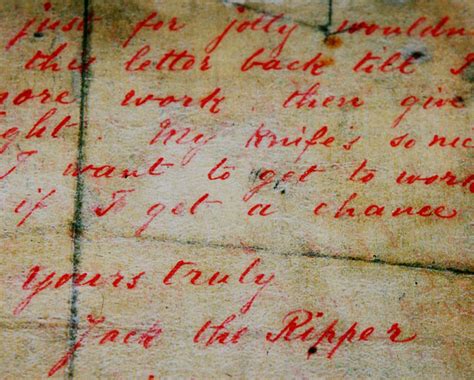 just for jolly wouldn
this letter back till I
more work then give
ght. My knife's so nic
I want to get to work
if I get a chance
Yours truly
Jack the Ripper